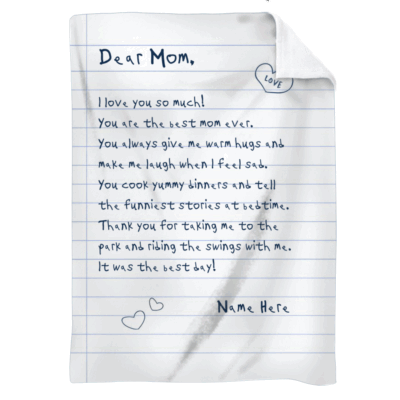 Dear Mom,
LOVE
I love you so much!
You are the best mom ever.
You always give me warm hugs and
make me laugh when I feel sad.
You cook yummy dinners and tell
the funniest stories at bedtime.
Thank you for taking me to the
park and riding the swings with me.
It was the best day!
Name Here